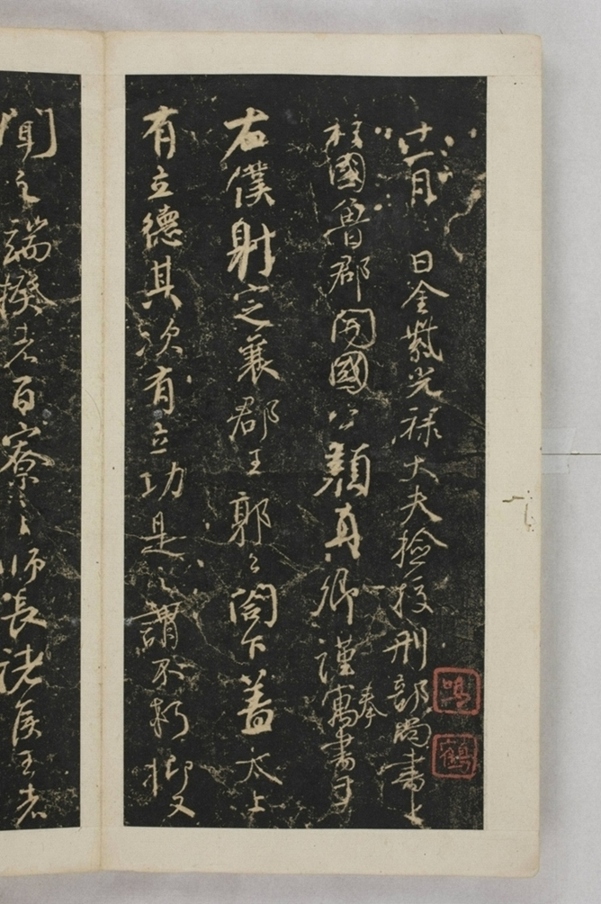 十一月日金紫光祿大夫檢校刑部尚書上
柱國魯郡開國公顏真卿謹奉寓書于
右僕射定襄郡王郭公閤下蓋太上
有立德其次有立功是之謂不朽抑又
聞之端揆者百寮之師長諸侯王者
鳴
鶴